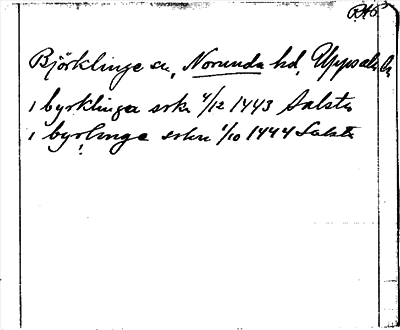 Björklinge sn, Norunda hd, Uppsala
i byrklinga srkn 4/12 1443 Salsta
i byrlinge srkn 1/10 1444 Salsta